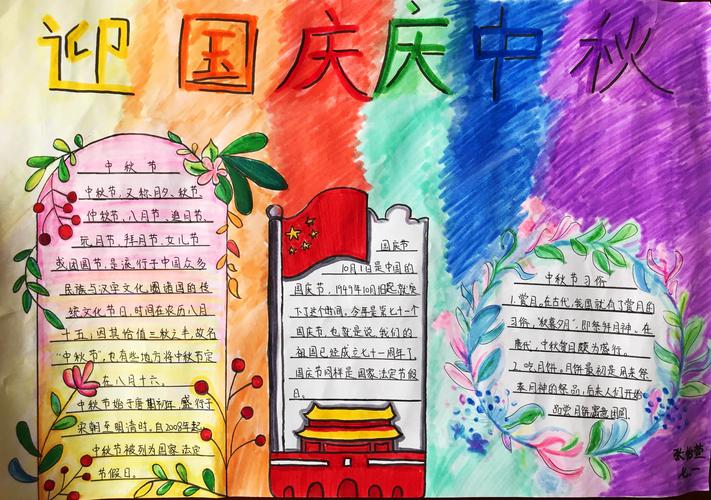 迎国庆庆中秋
中秋节
中秋节,又称月夕、秋节、
仲秋节、八月节、追月节、
玩月节、拜月节、女儿节
或团圆节,是流行于中国众多
民族与汉字文化圈诸国的传
统文化节日,时间在农历八月
十五;因其恰值三秋之半,故名
“中秋节”,也有些地方将中秋节定
在八月十六。
中秋节始于唐朝初年,盛行于
宋朝至明清时,自2008年起
中秋节被列为国家法定
节假日。
国庆节
10月1日是中国的
国庆节,1949年10月1日起就定
下了这个时间,今年是第七十一个
国庆节,也就是说,我们的
祖国已经成立七十一周年了,
国庆节同样是国家法定节假
日。
中秋节习俗
1.赏月。在古代,我国就有了赏月的
习俗,“秋暮夕月”,即祭拜月神、在
唐代,中秋赏月颇为盛行。
2.吃月饼。月饼最初是用来祭
奉月神的祭品,后来人们开始
品尝月饼寓意团圆
七一